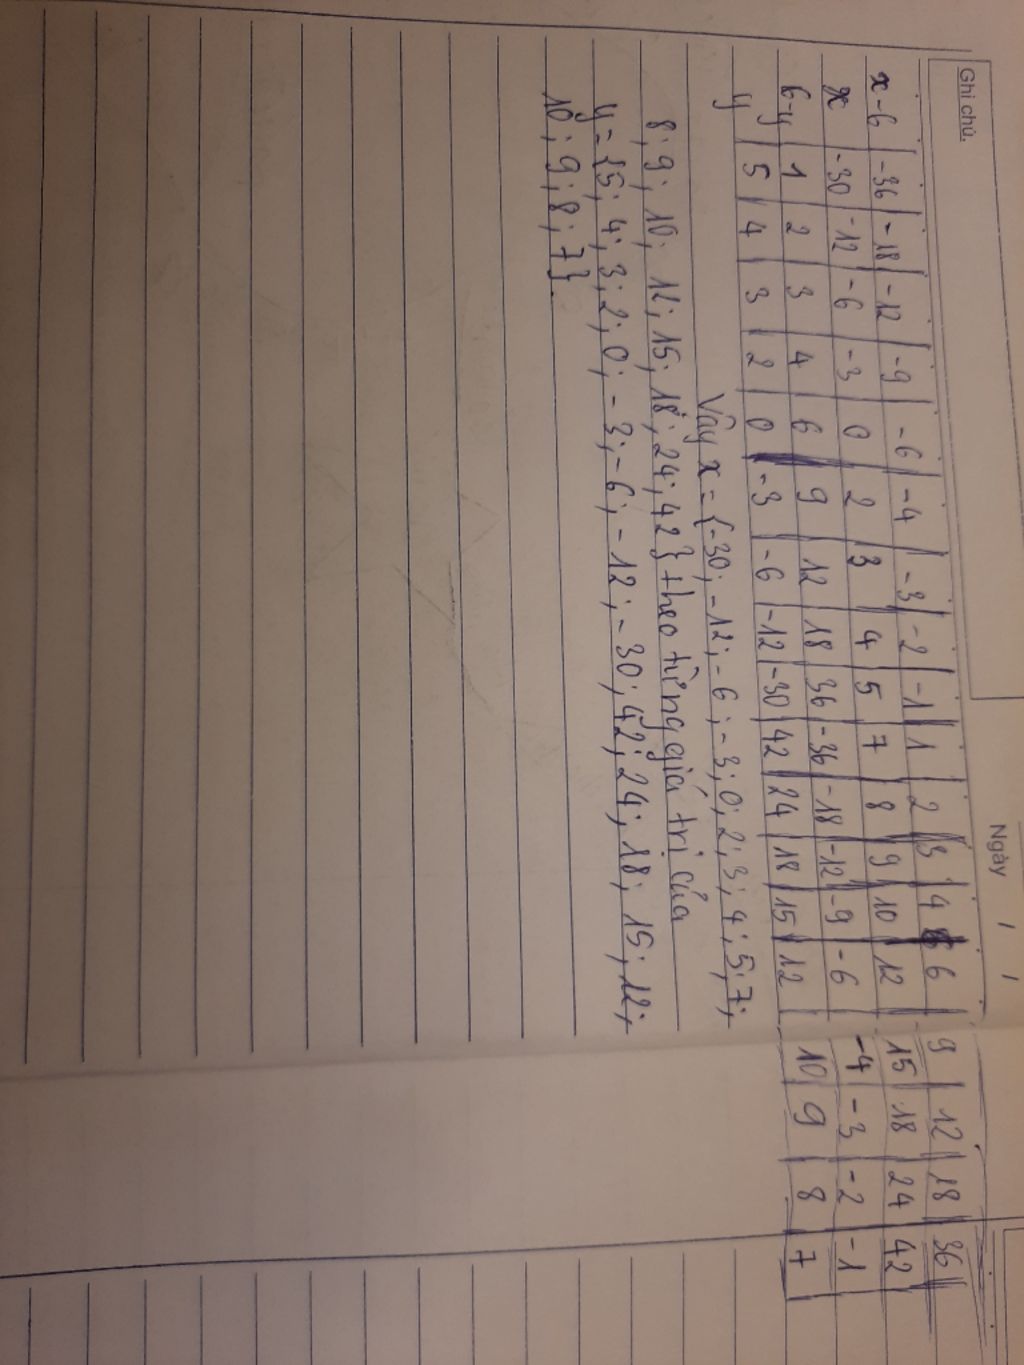 Ghi chú. Ngày / /
x-6 | -36 | -18 | -12 | -9 | -6 | -4 | -3 | -2 | -1 | 1 | 2 | 3 | 4 | 6 | 9 | 12 | 18 | 36
x | -30 | -12 | -6 | -3 | 0 | 2 | 3 | 4 | 5 | 7 | 8 | 9 | 10 | 12 | 15 | 18 | 24 | 42
6-y | 1 | 2 | 3 | 4 | 6 | 9 | 12 | 18 | 36 | -36 | -18 | -12 | -9 | -6 | -4 | -3 | -2 | -1
y | 5 | 4 | 3 | 2 | 0 | -3 | -6 | -12 | -30 | 42 | 24 | 18 | 15 | 12 | 10 | 9 | 8 | 7
Vậy x = {-30; -12; -6; -3; 0; 2; 3; 4; 5; 7;
8; 9; 10; 12; 15; 18; 24; 42} theo từng giá trị của
y = {5; 4; 3; 2; 0; -3; -6; -12; -30; 42; 24; 18; 15; 12;
10; 9; 8; 7}.